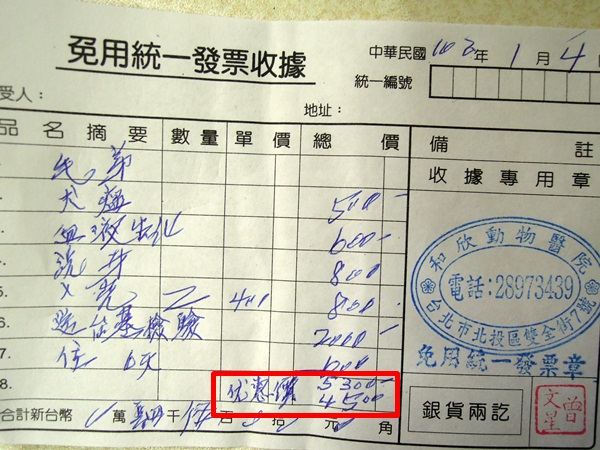 免用統一發票收據
中華民國103年1月4
統一編號
受人：
地址：
品名摘要 數量 單價 總價 備註
收據專用章
犬瘟 500
血液生化 600
洗牙 800
5. X光 2 400 800
6 檢驗 2000
7. 住6天 600
8. 优惠價 5300
4500
和欣動物醫院
電話：28973439
台北市北投區雙全街7號
免用統一發票章
合計新台幣 萬 肆千 伍百 拾 元 角
銀貨兩訖
曾文星